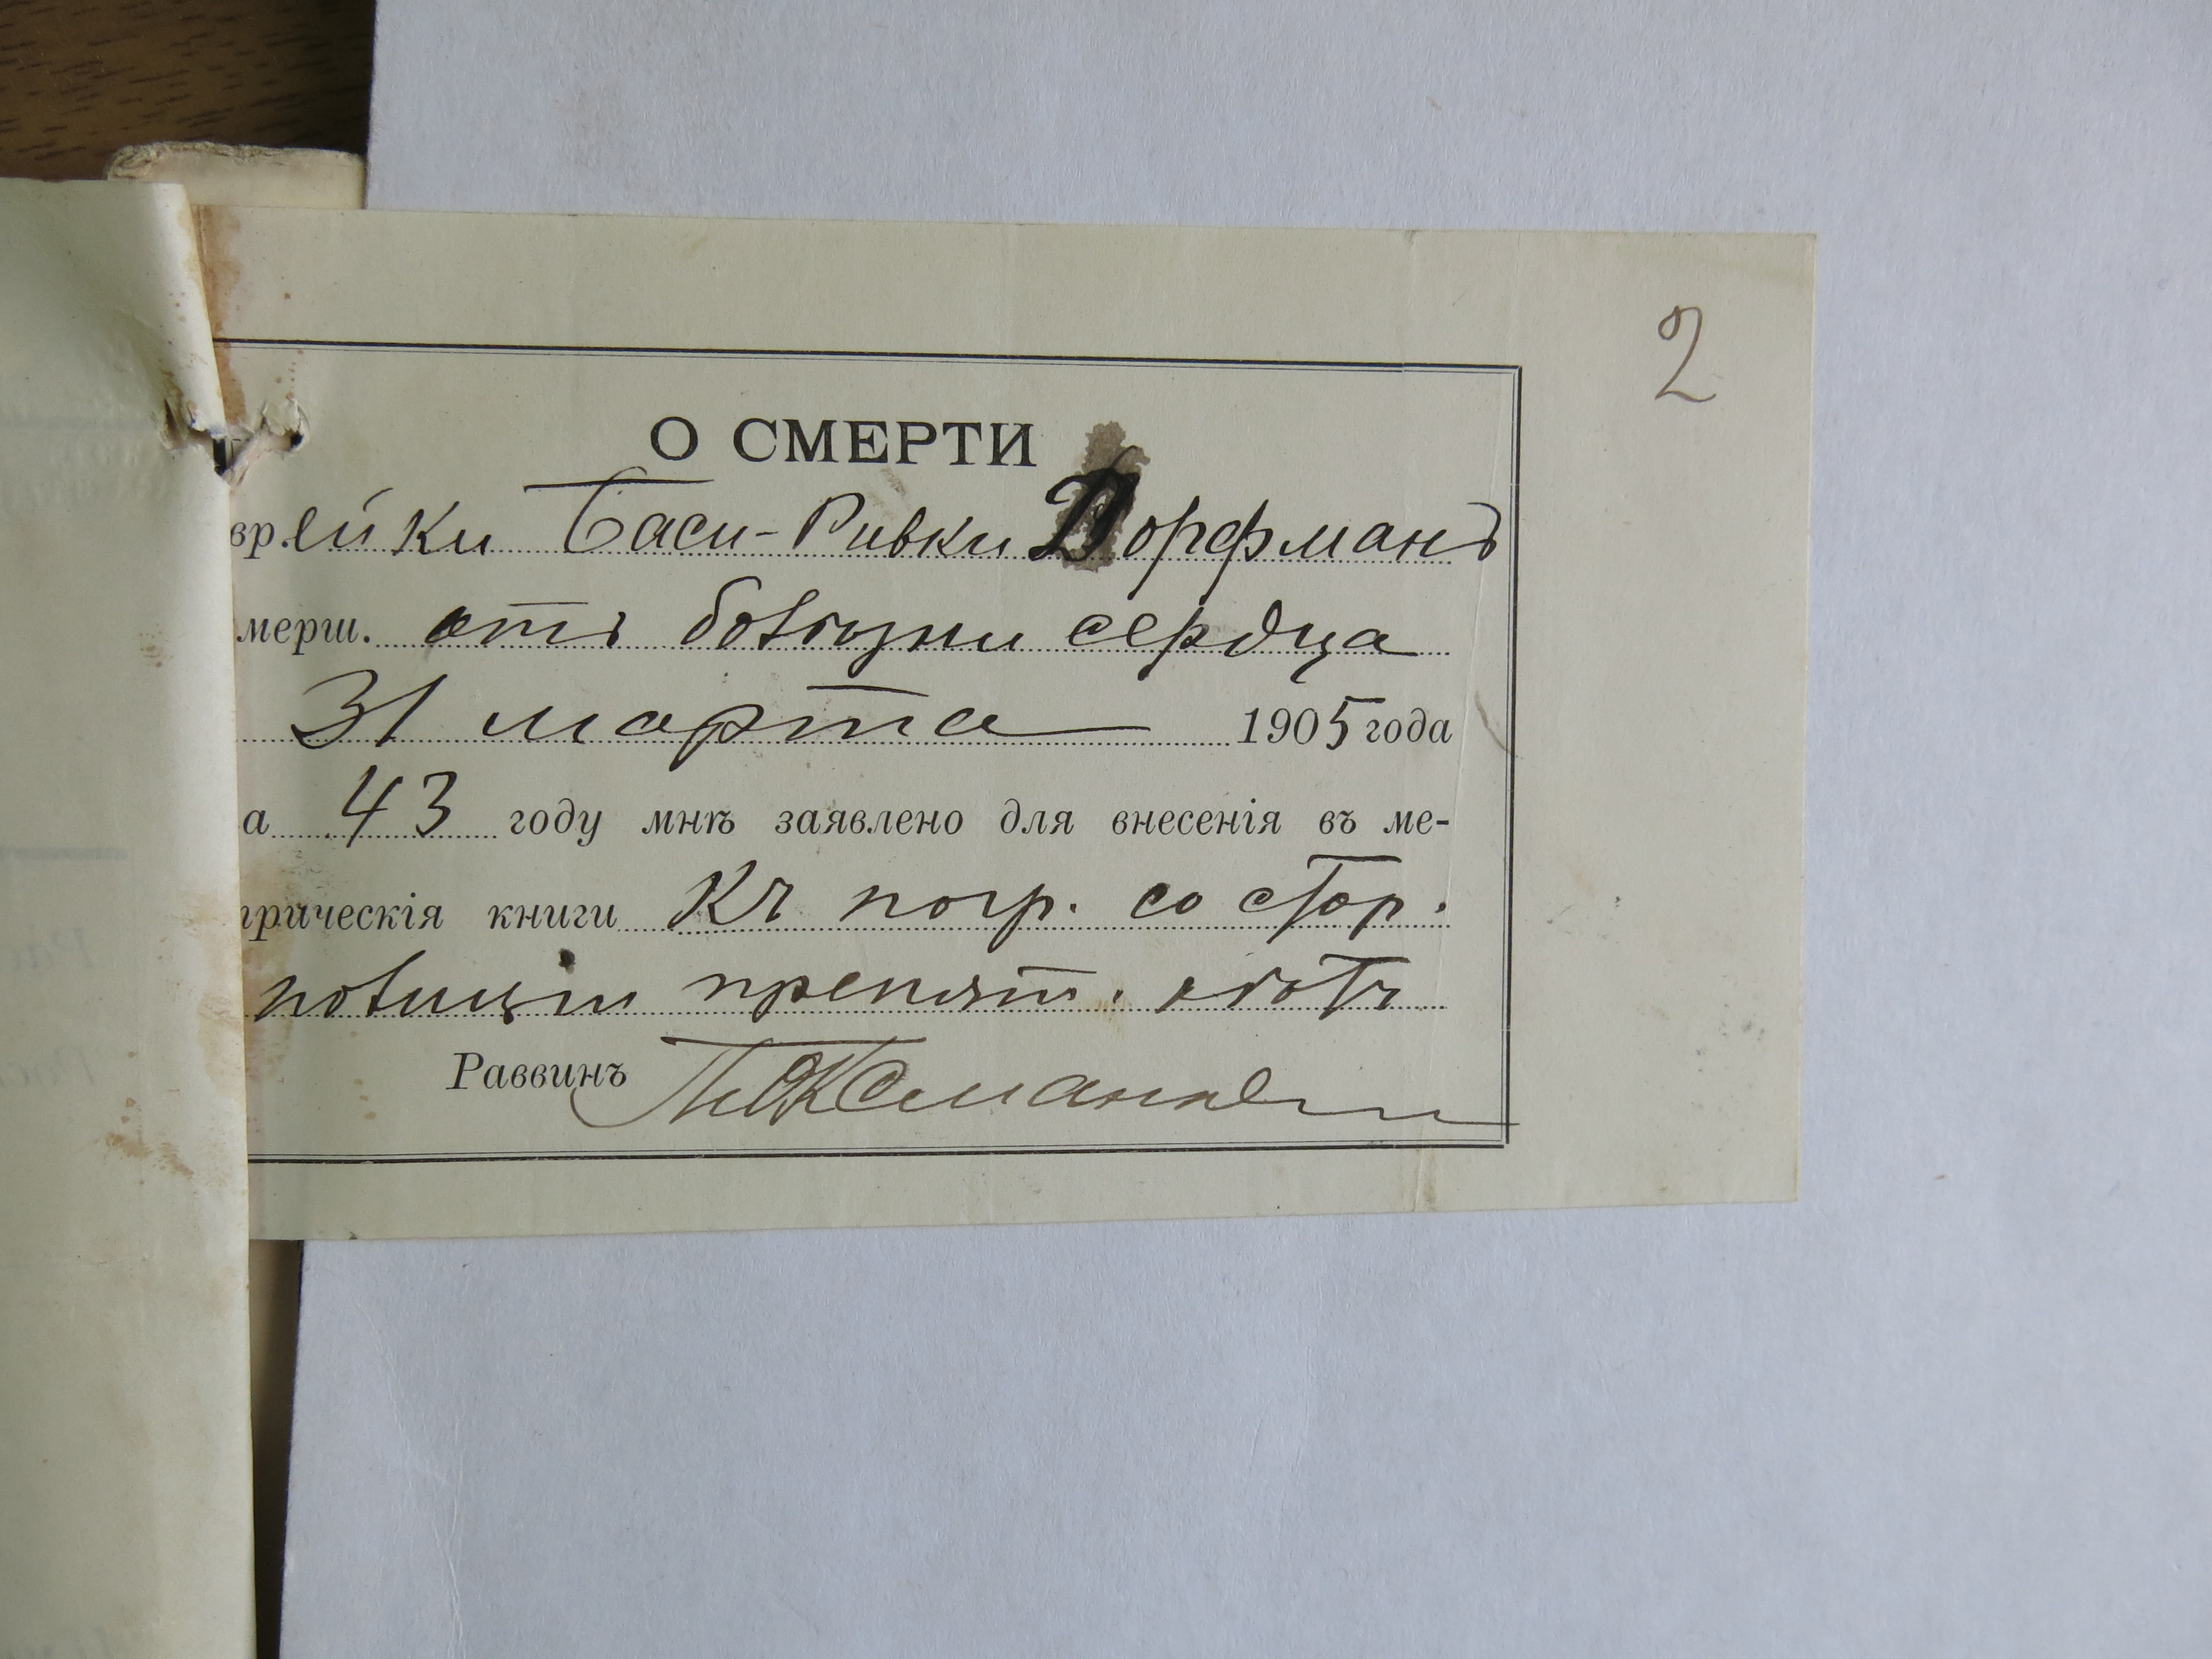 2
О СМЕРТИ
вр.ейки Баси-Ривки Дорфманъ
мерш. отъ болѣзни сердца
31 марта 1905 года
а 43 году мнѣ заявлено для внесенія въ ме-
трическія книги Къ погр. со стор.
полиціи препят. нѣтъ
Раввинъ